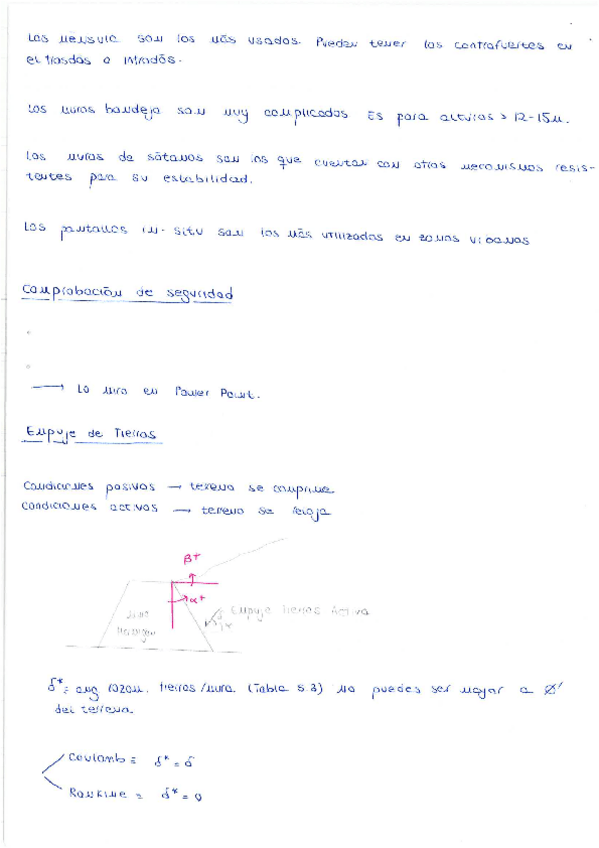 Los ménsula son los más usados. Pueden tener los contrafuertes en
el trasdós o intradós.
Los muros bandeja son muy complicados Es para alturas > 12-15m.
Los muros de sótanos son los que cuentan con otros mecanismos resis-
tentes para su estabilidad.
Los pantallas in-situ son los más utilizados en zonas urbanas
Comprobación de seguridad
→ Lo mira en Power Point.
Empuje de Tierras
Condiciones pasivas → terreno se comprime
Condiciones activas → terreno se relaja
β+
α+
Empuje Tierras Activo
Muro
Hormigón
δ* = ang rozam. tierras/muro. (Tabla 5.3) no puedes ser mayor a Ø'
del terreno.
Coulomb = δ* = δ
Rankine = δ* = 0